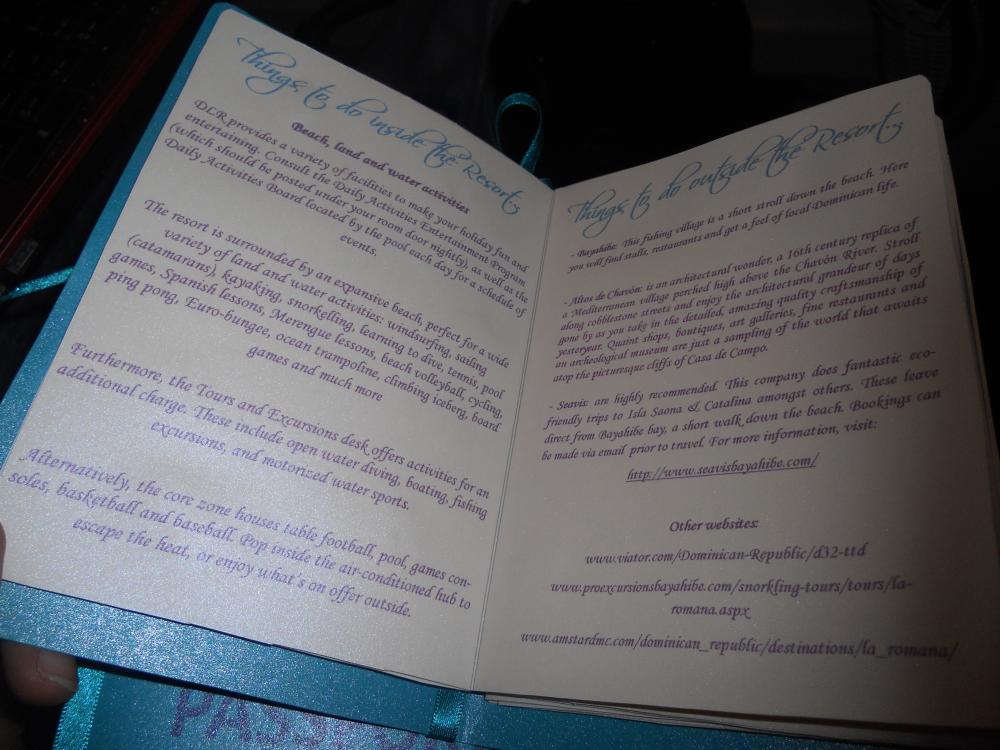 Things to do inside the Resort
Beach, land and water activities
DLR provides a variety of facilities to make your holiday fun and
entertaining. Consult the Daily Activities Entertainment Program
(which should be posted under your room door nightly), as well as the
Daily Activities Board located by the pool each day for a schedule of
events.
The resort is surrounded by an expansive beach, perfect for a wide
variety of land and water activities: windsurfing, sailing
(catamarans), kayaking, snorkelling, learning to dive, tennis, pool
games, Spanish lessons, Merengue lessons, beach volleyball, cycling,
ping pong, Euro-bungee, ocean trampoline, climbing iceberg, board
games and much more
Furthermore, the Tours and Excursions desk offers activities for an
additional charge. These include open water diving, boating, fishing
excursions, and motorized water sports.
Alternatively, the core zone houses table football, pool, games con-
soles, basketball and baseball. Pop inside the air-conditioned hub to
escape the heat, or enjoy what's on offer outside.
Things to do outside the Resort
- Bayahibe: This fishing village is a short stroll down the beach. Here
you will find stalls, restaurants and get a feel of local Dominican life.
- Altos de Chavón: is an architectural wonder, a 16th century replica of
a Mediterranean village perched high above the Chavón River. Stroll
along cobblestone streets and enjoy the architectural grandeur of days
gone by as you take in the detailed, amazing quality craftsmanship of
yesteryear. Quaint shops, boutiques, art galleries, fine restaurants and
an archeological museum are just a sampling of the world that awaits
atop the picturesque cliffs of Casa de Campo.
- Seavis: are highly recommended. This company does fantastic eco-
friendly trips to Isla Saona & Catalina amongst others. These leave
direct from Bayahibe bay, a short walk down the beach. Bookings can
be made via email prior to travel. For more information, visit:
http://www.seavisbayahibe.com/
Other websites:
www.viator.com/Dominican-Republic/d32-ttd
www.proexcursionsbayahibe.com/snorkling-tours/tours/la-
romana.aspx
www.amstardmc.com/dominican_republic/destinations/la_romana/